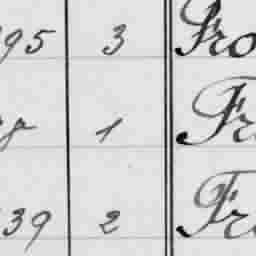 95 3 Fro
1 Fr
39 2 Fr